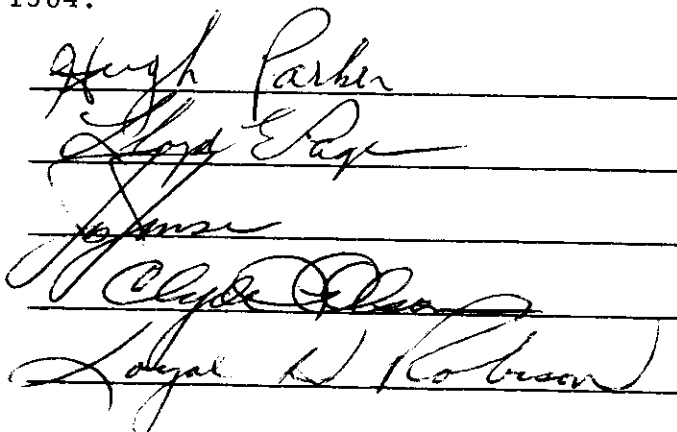 1964.
Hugh Parker
Lloyd E Page
Clyde Olson
Loyal D Robison